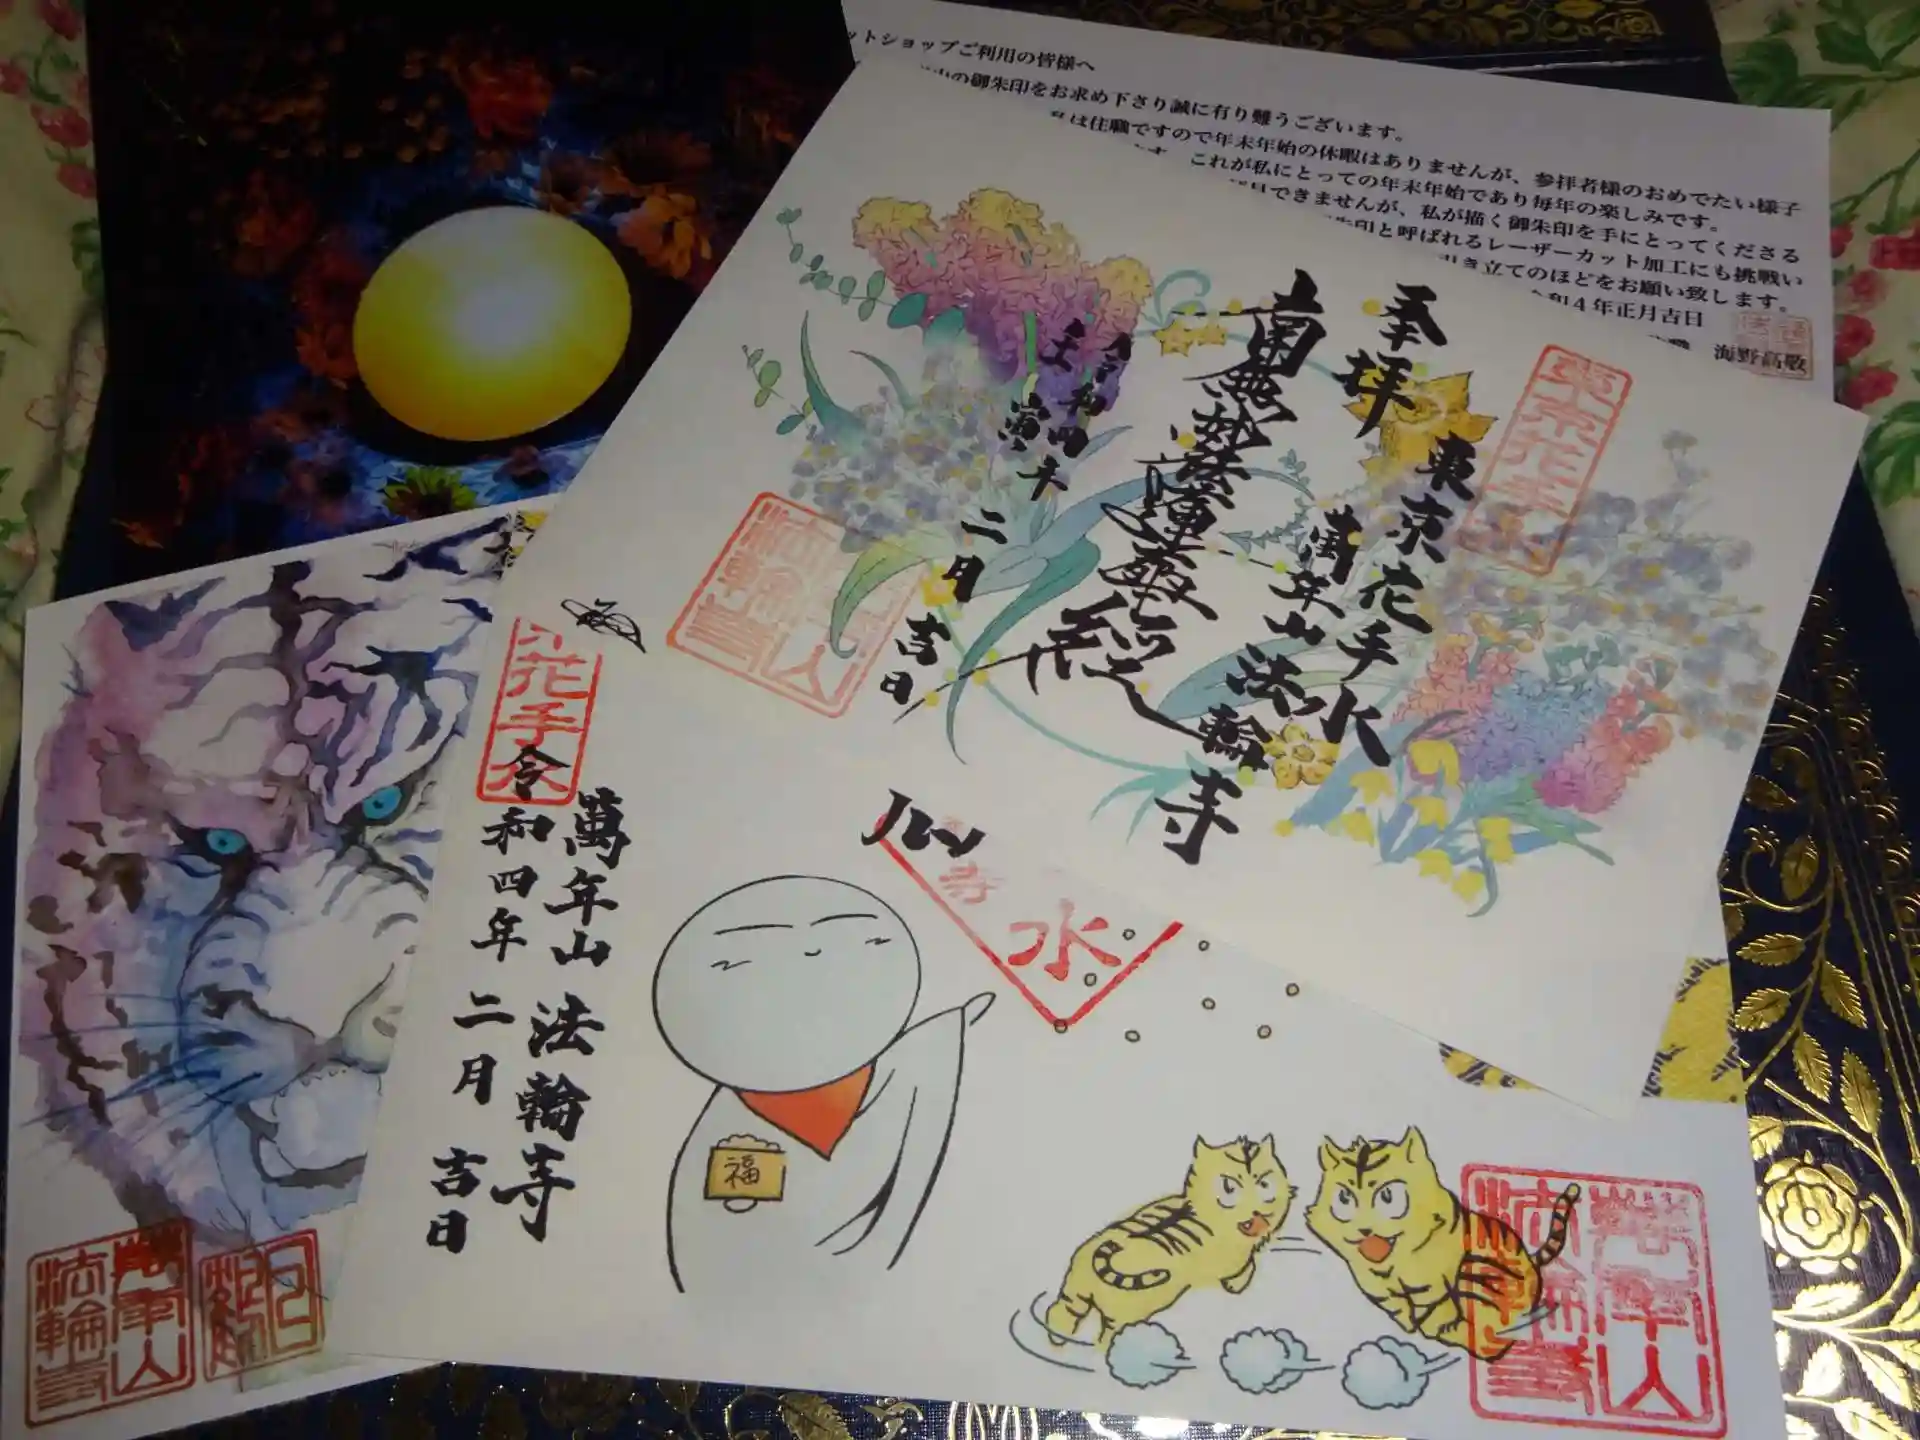 ットショップご利用の皆様へ
の御朱印をお求め下さり誠に有り難うございます。
は住職ですので年末年始の休暇はありませんが、参拝者様のおめでたい様子
これが私にとっての年末年始であり毎年の楽しみです。
できませんが、私が描く御朱印を手にとってくださる
朱印と呼ばれるレーザーカット加工にも挑戦い
引き立てのほどをお願い致します。
令和４年正月吉日
海野高敬
奉拝
東京花手水
東京花手水
萬年山法輪寺
南無妙法蓮華経
令和四年
壬寅
二月
吉日
萬年山
法輪寺
花手水
萬年山 法輪寺
令和四年 二月 吉日
水
福
萬年山
法輪寺
萬年山
法輪寺